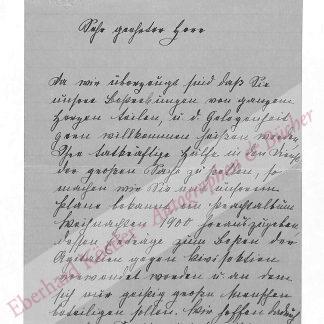 Sehr geehrter Herr
Da wir überzeugt sind daß Sie
unsere Bestrebungen von ganzem
Herzen teilen, u. d. Gelegenheit
gern willkommen heißen werden
Ihre tatkräftige Hülfe in den Dienst
der großen Sache zu stellen, so
machen wir Sie mit unserem
Plane bekannt ein Prachtalbum
Weihnachten 1900 herauszugeben
dessen Erträge zum Besten der
Agitation gegen Vivisektion
verwendet werden u. an dem
sich nur geistig große Menschen
beteiligen sollen. Wir hoffen dadurch
Eberhard Köstler Autographen & Bücher